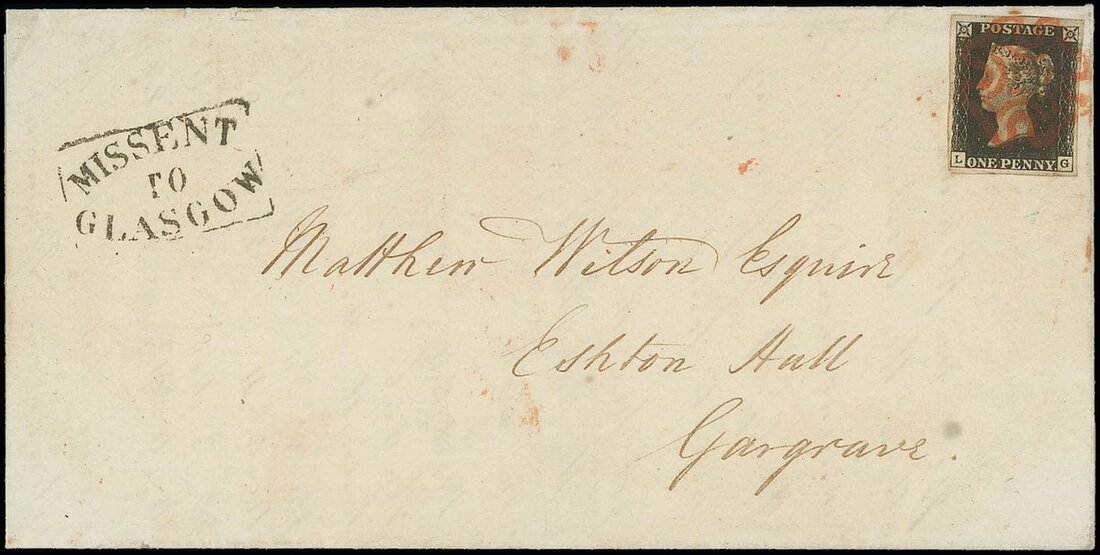 MISSENT
TO
GLASGOW
POSTAGE
L G
ONE PENNY
Matthew Wilson Esquire
Eshton Hall
Gargrave.